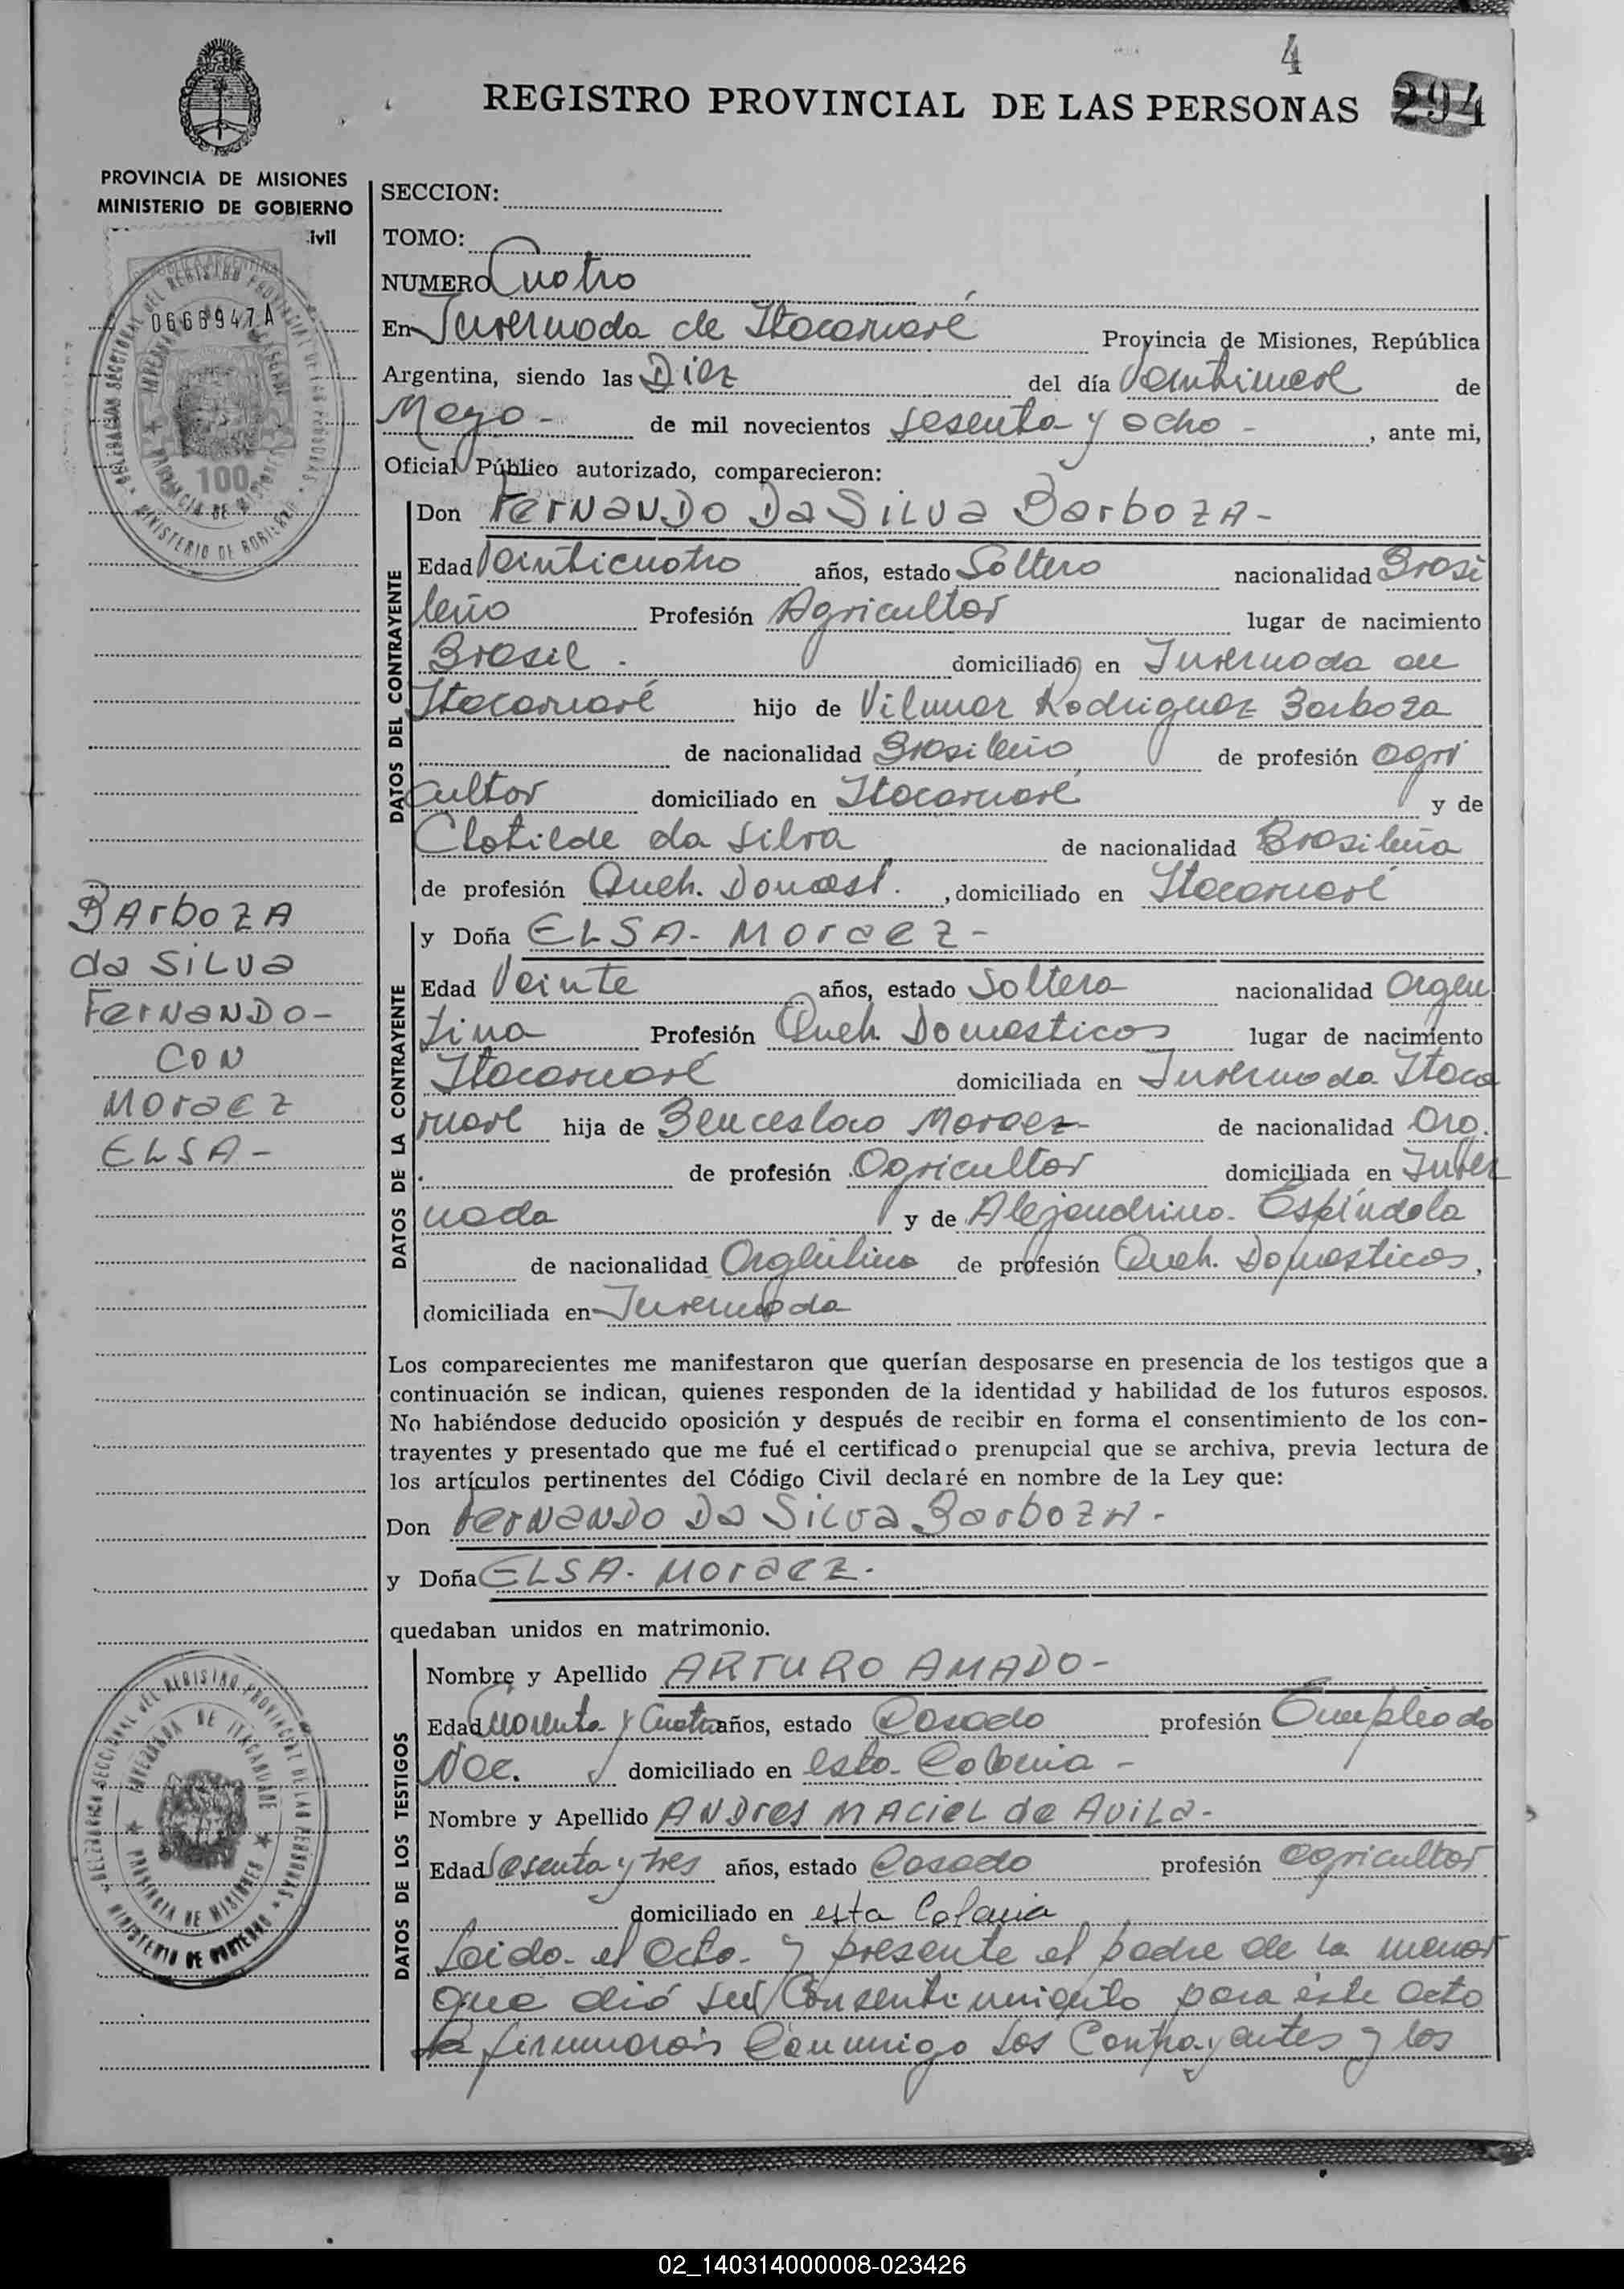 4
REGISTRO PROVINCIAL DE LAS PERSONAS 294
PROVINCIA DE MISIONES
MINISTERIO DE GOBIERNO
ivil
0668947A
100
SECCION:
TOMO:
NUMERO Cuatro
En Invernada de Itacaruaré Provincia de Misiones, República
Argentina, siendo las Diez del día de
Mayo - de mil novecientos sesenta y ocho - , ante mi,
Oficial Público autorizado, comparecieron:
DATOS DEL CONTRAYENTE
Don Fernando Da Silva Barboza -
Edad Veinticuatro años, estado Soltero nacionalidad Brasi
leño Profesión Agricultor lugar de nacimiento
Brasil . domiciliado en Invernada de
Itacaruaré hijo de Vilmar Rodriguez Barboza
de nacionalidad Brasileño de profesión agri
cultor domiciliado en Itacaruaré y de
Clotilde da Silva de nacionalidad Brasileña
de profesión Queh. Domest. , domiciliado en Itacaruaré
DATOS DE LA CONTRAYENTE
y Doña ELSA - Moraez -
Edad Veinte años, estado Soltera nacionalidad Argen
tina Profesión Queh. Domesticos lugar de nacimiento
Itacaruaré domiciliada en Invernada Itaca
ruare hija de Benceslao Moraez - de nacionalidad Arg.
de profesión Agricultor domiciliada en Inver
nada y de Alejandrina - Espíndola
de nacionalidad Argentina de profesión Queh. Domesticos,
domiciliada en Invernada
Los comparecientes me manifestaron que querían desposarse en presencia de los testigos que a
continuación se indican, quienes responden de la identidad y habilidad de los futuros esposos.
No habiéndose deducido oposición y después de recibir en forma el consentimiento de los con-
trayentes y presentado que me fué el certificado prenupcial que se archiva, previa lectura de
los artículos pertinentes del Código Civil declaré en nombre de la Ley que:
Don Fernando Da Silva Barboza -
y Doña ELSA - Moraez -
quedaban unidos en matrimonio.
DATOS DE LOS TESTIGOS
Nombre y Apellido ARTURO AMADO -
Edad Cuarenta y Cuatro años, estado Casado profesión Empleado
Nac. domiciliado en esta - Colonia -
Nombre y Apellido Andres Maciel de Avila -
Edad Sesenta y tres años, estado Casado profesión agricultor
domiciliado en esta Colonia
Leida - el acta - y presente el padre de la menor
que dió su Consentimiento para éste acto
la firmaron Conmigo los Contrayentes y los
BARboZA
da SILva
Fernando -
CON
Moraez
ELSA -
DELEGACION SECCIONAL DEL REGISTRO PROVINCIAL DE LAS PERSONAS
INVERNADA DE ITACARUARE
PROVINCIA DE MISIONES
MINISTERIO DE GOBIERNO
02_140314000008-023426